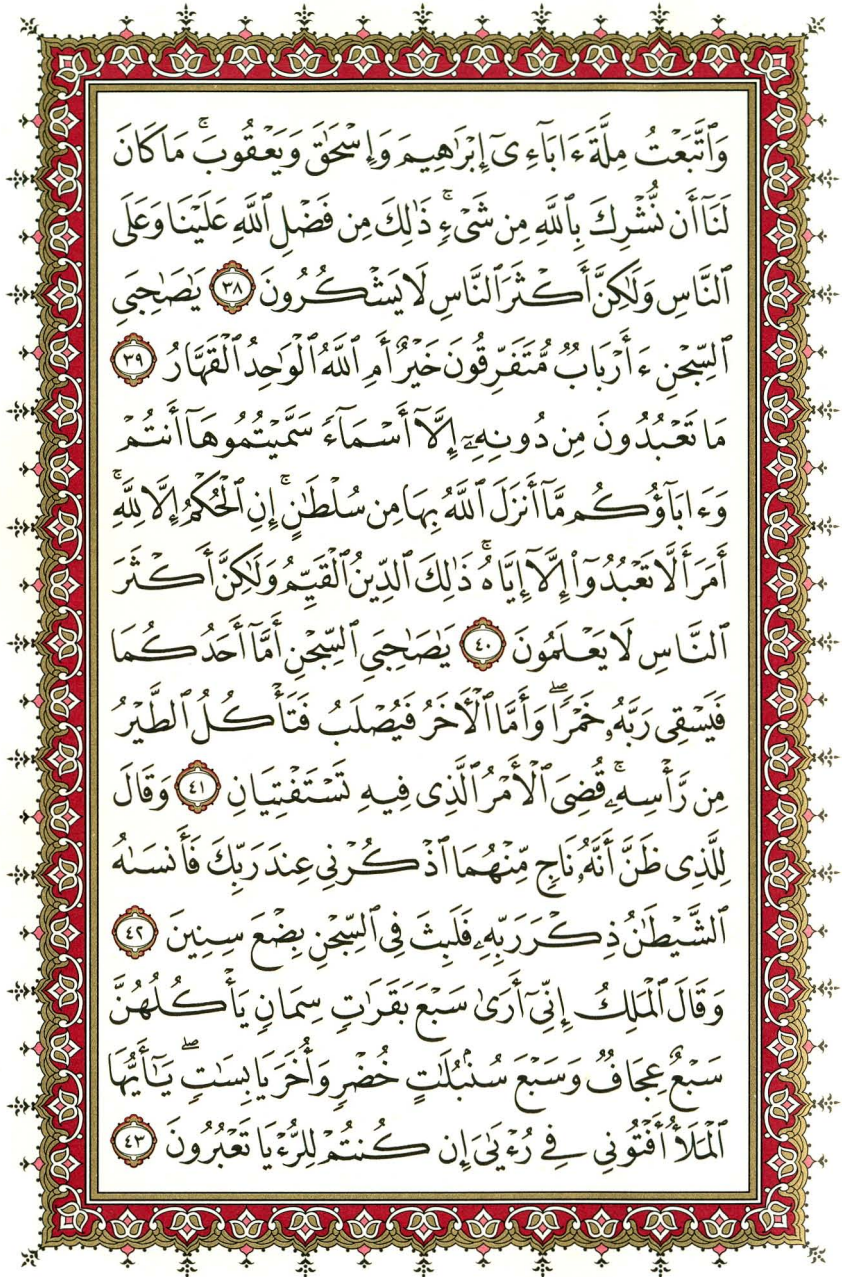 وَٱتَّبَعْتُ مِلَّةَ ءَابَآءِىٓ إِبْرَٰهِيمَ وَإِسْحَٰقَ وَيَعْقُوبَ ۚ مَا كَانَ
لَنَآ أَن نُّشْرِكَ بِٱللَّهِ مِن شَىْءٍ ۚ ذَٰلِكَ مِن فَضْلِ ٱللَّهِ عَلَيْنَا وَعَلَى
ٱلنَّاسِ وَلَٰكِنَّ أَكْثَرَ ٱلنَّاسِ لَا يَشْكُرُونَ ٣٨ يَٰصَٰحِبَىِ
ٱلسِّجْنِ ءَأَرْبَابٌ مُّتَفَرِّقُونَ خَيْرٌ أَمِ ٱللَّهُ ٱلْوَٰحِدُ ٱلْقَهَّارُ ٣٩
مَا تَعْبُدُونَ مِن دُونِهِۦٓ إِلَّآ أَسْمَآءً سَمَّيْتُمُوهَآ أَنتُمْ
وَءَابَآؤُكُم مَّآ أَنزَلَ ٱللَّهُ بِهَا مِن سُلْطَٰنٍ ۚ إِنِ ٱلْحُكْمُ إِلَّا لِلَّهِ ۚ
أَمَرَ أَلَّا تَعْبُدُوٓا۟ إِلَّآ إِيَّاهُ ۚ ذَٰلِكَ ٱلدِّينُ ٱلْقَيِّمُ وَلَٰكِنَّ أَكْثَرَ
ٱلنَّاسِ لَا يَعْلَمُونَ ٤٠ يَٰصَٰحِبَىِ ٱلسِّجْنِ أَمَّآ أَحَدُكُمَا
فَيَسْقِى رَبَّهُۥ خَمْرًا ۖ وَأَمَّا ٱلْءَاخَرُ فَيُصْلَبُ فَتَأْكُلُ ٱلطَّيْرُ
مِن رَّأْسِهِۦ ۚ قُضِىَ ٱلْأَمْرُ ٱلَّذِى فِيهِ تَسْتَفْتِيَانِ ٤١ وَقَالَ
لِلَّذِى ظَنَّ أَنَّهُۥ نَاجٍ مِّنْهُمَا ٱذْكُرْنِى عِندَ رَبِّكَ فَأَنسَىٰهُ
ٱلشَّيْطَٰنُ ذِكْرَ رَبِّهِۦ فَلَبِثَ فِى ٱلسِّجْنِ بِضْعَ سِنِينَ ٤٢
وَقَالَ ٱلْمَلِكُ إِنِّىٓ أَرَىٰ سَبْعَ بَقَرَٰتٍ سِمَانٍ يَأْكُلُهُنَّ
سَبْعٌ عِجَافٌ وَسَبْعَ سُنۢبُلَٰتٍ خُضْرٍ وَأُخَرَ يَابِسَٰتٍ ۖ يَٰٓأَيُّهَا
ٱلْمَلَأُ أَفْتُونِى فِى رُءْيَٰىَ إِن كُنتُمْ لِلرُّءْيَا تَعْبُرُونَ ٤٣